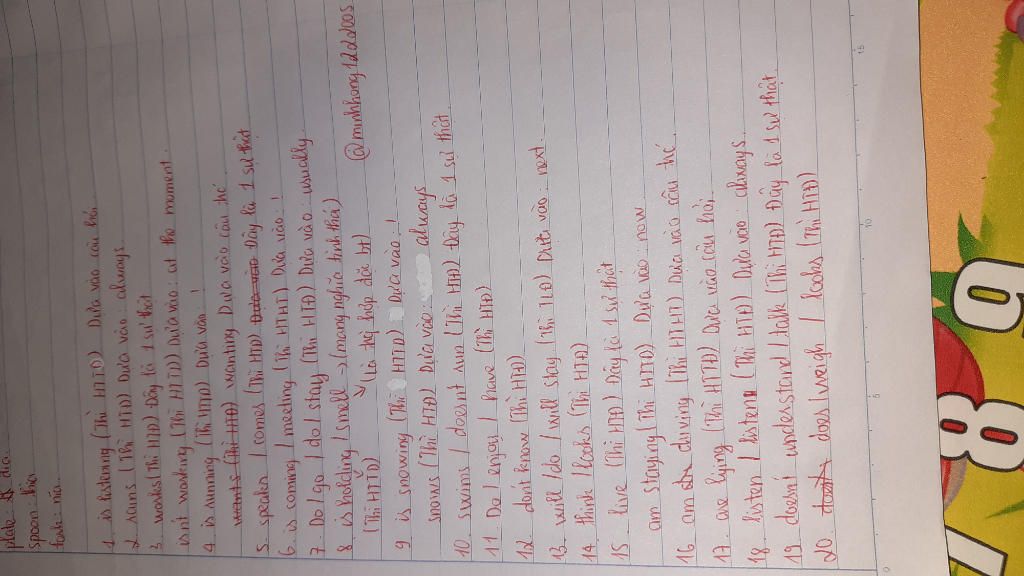 plate: đĩa
spoon: thìa
fork: nĩa
1. is listening (Thì HTTD) Dựa vào câu hỏi
2. runs (Thì HTĐ) Dựa vào: always
3. works (Thì HTĐ) Đây là 1 sự thật
isn't working (Thì HTTD) Dựa vào: at the moment.
4. is running (Thì HTTD) Dựa vào: !
wants (Thì HTĐ) wanting Dựa vào câu thế
5. speaks / comes (Thì HTĐ) Dựa vào Đây là 1 sự thật
6. is coming / meeting (Thì HTHT) Dựa vào: !
7. Do / go / do / stay (Thì HTĐ) Dựa vào: usually
8. is holding / smell → (mang nghĩa tình thái)
(Thì HTTD) (là trg hợp đặc bt) @minhhong12222005
9. is snowing (Thì HTTD) Dựa vào: !
snows (Thì HTĐ) Dựa vào always
10. swims / doesn't run (Thì HTĐ) Đây là 1 sự thật
11. Do / enjoy / have (Thì HTĐ)
12. don't know (Thì HTĐ)
13. will / do / will stay (Thì TLĐ) Dựa vào: next
14. think / looks (Thì HTĐ)
15. live (Thì HTĐ) Đây là 1 sự thật
am staying (Thì HTTD) Dựa vào now
16. am driving (Thì HTHT) Dựa vào câu thế
17. are lying (Thì HTTD) Dựa vào câu hỏi.
18. listen / listen (Thì HTĐ) Dựa vào: always
19. doesn't understand / talk (Thì HTĐ) Đây là 1 sự thật
20. does / weigh / looks (Thì HTĐ)
0
5
10
15
1
8
9